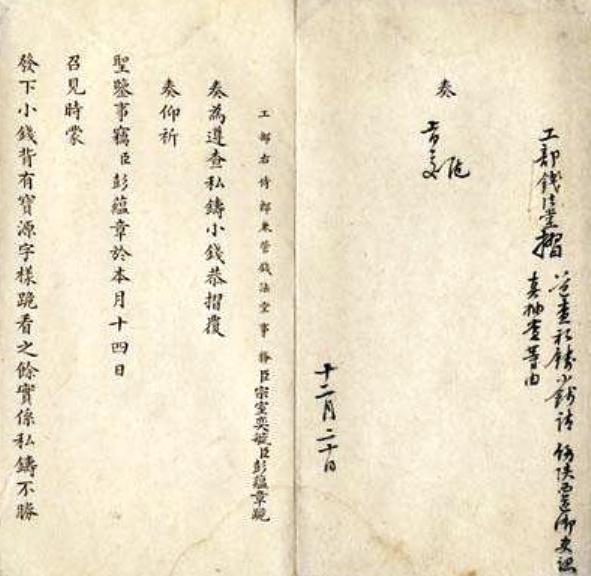 工部錢法堂摺
遵查私鑄小錢請 飭陝西道御史認
真抽查等由
奏
旨交
十二月二十日
工部右侍郎兼管錢法堂事務臣宗室奕毓臣彭蘊章跪
奏為遵查私鑄小錢恭摺覆
奏仰祈
聖鑒事竊臣彭蘊章於本月十四日
召見時蒙
發下小錢背有寶源字樣跪看之餘實係私鑄不勝